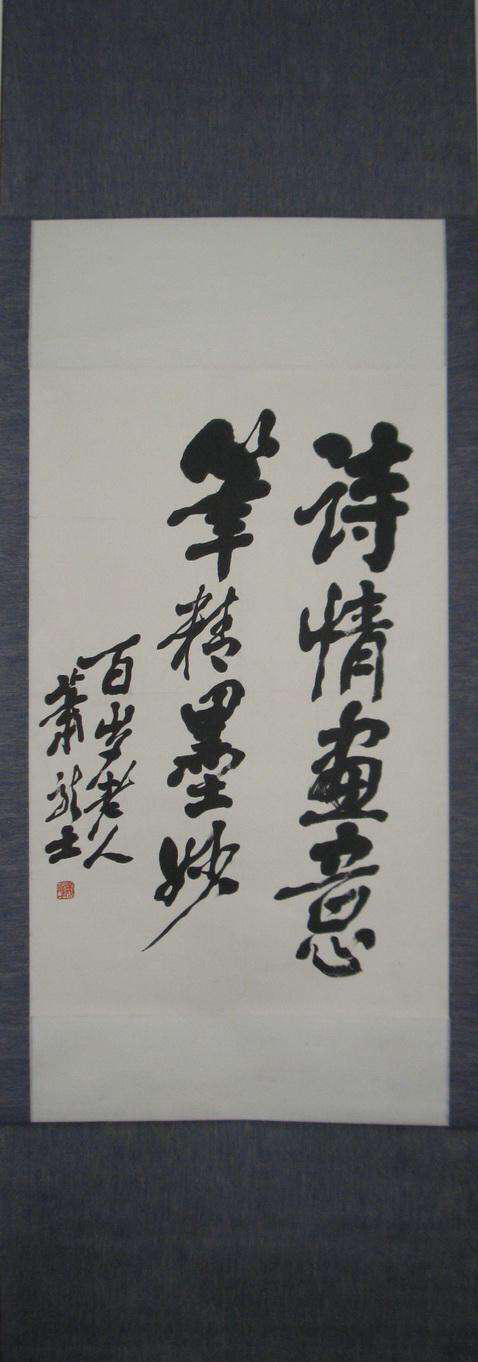 詩情畫意
筆精墨妙
百岁老人
蕭龍士